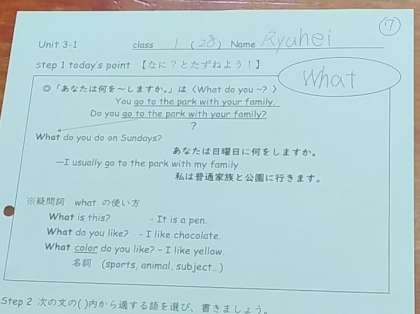 ⑦
Unit 3-1 class 1 (28) Name Ryuhei
step 1 today's point 【なに？とたずねよう！】
What
◎「あなたは何を～しますか。」は〈What do you ~?〉
You go to the park with your family.
Do you go to the park with your family?
?
What do you do on Sundays?
あなたは日曜日に何をしますか。
—I usually go to the park with my family
私は普通家族と公園に行きます。
※疑問詞 what の使い方
What is this? - It is a pen.
What do you like? - I like chocolate.
What color do you like? – I like yellow.
名詞 (sports, animal, subject…)
Step 2 次の文の( )内から適する語を選び、書きましょう。